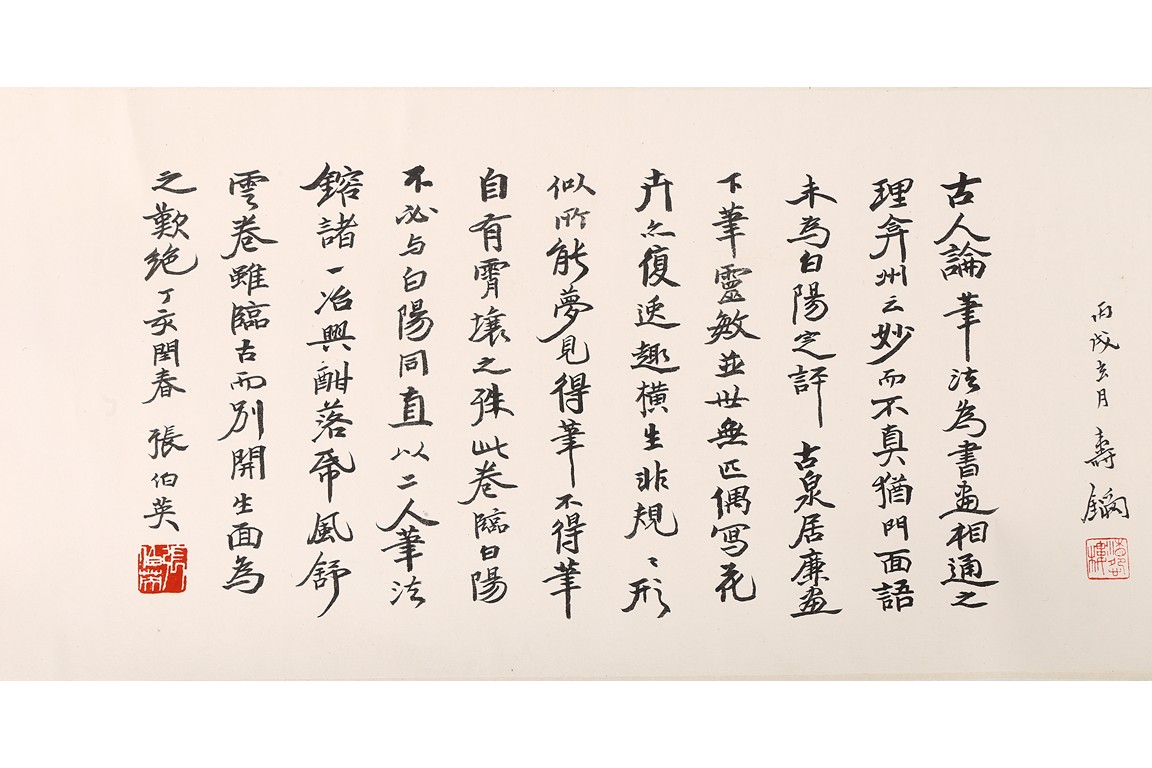 丙戌玄月 壽
古人論筆法為書畫相通之
理弇州云妙而不真猶門面語
未為白陽定評 古泉居廉畫
下筆靈敏並世無匹偶寫花
卉亦復逸趣橫生非規〻形
似所能夢見得筆不得筆
自有霄壤之殊此卷臨白陽
不必与白陽同直以二人筆法
鎔諸一冶興酣落帋風舒
雲卷雖臨古而別開生面為
之歎絕丁亥閏春 張伯英
張伯英